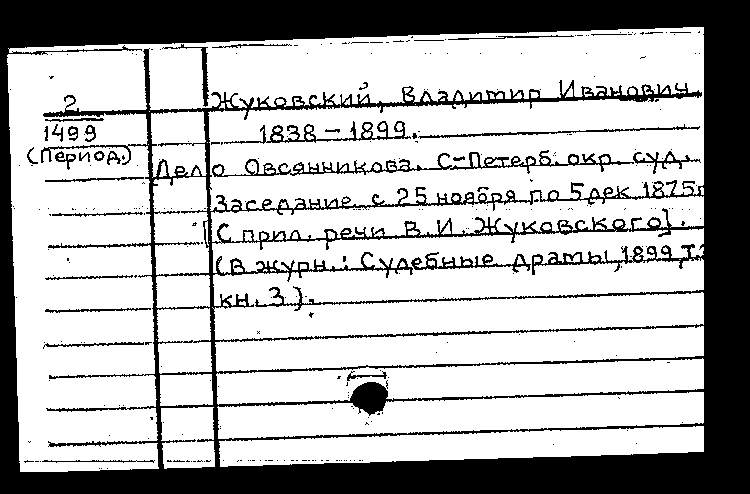 2
1499
(Период.)
Жуковский, Владимир Иванович
1838 - 1899.
Дело Овсянникова. С-Петерб. окр. суд.
Заседание с 25 ноября по 5 дек 1875г
[С прил. речи В. И. Жуковского].
(В журн.: Судебные драмы, 1899, т.
кн. 3).